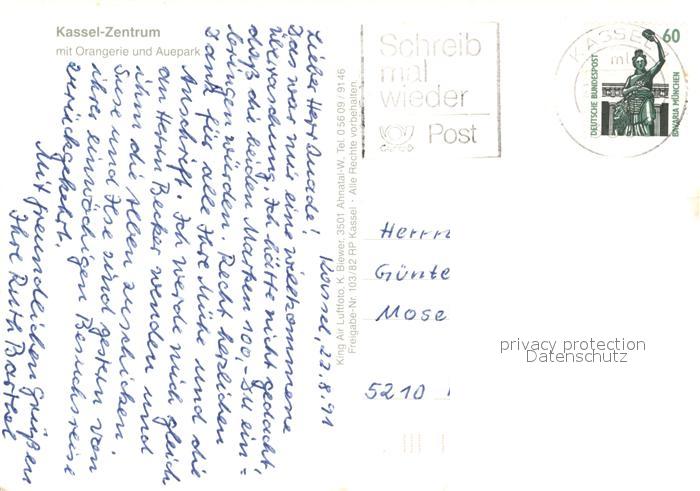 Kassel-Zentrum
mit Orangerie und Auepark
Kassel, 22.8.91
Liebe Herr Quade!
Das war mir eine willkommene
Überraschung. Ich hätte nicht gedacht,
daß die beiden Marken 100,- DM ein-
bringen würden. Recht herzlichen
Dank für alle Ihre Mühe und die
Anschrift. Ich werde mich gleich
an Herrn Becker wenden und
ihm die Alben zuschicken.
Suse und Ilse sind gestern von
ihrer einwöchigen Besuchsreise
zurückgekehrt.
Mit freundlichen Grüßen
Ihre Ruth Barthel
King Air Luftfoto, K. Biewer, 3501 Ahnatal-W, Tel. 0 56 09 / 91 46
Freigabe-Nr. 103/82 RP Kassel · Alle Rechte vorbehalten.
Schreib
mal
wieder
Post
KASSEL
60
DEUTSCHE BUNDESPOST
BAVARIA MÜNCHEN
Herrn
Günte
Mose
5210
privacy protection
Datenschutz